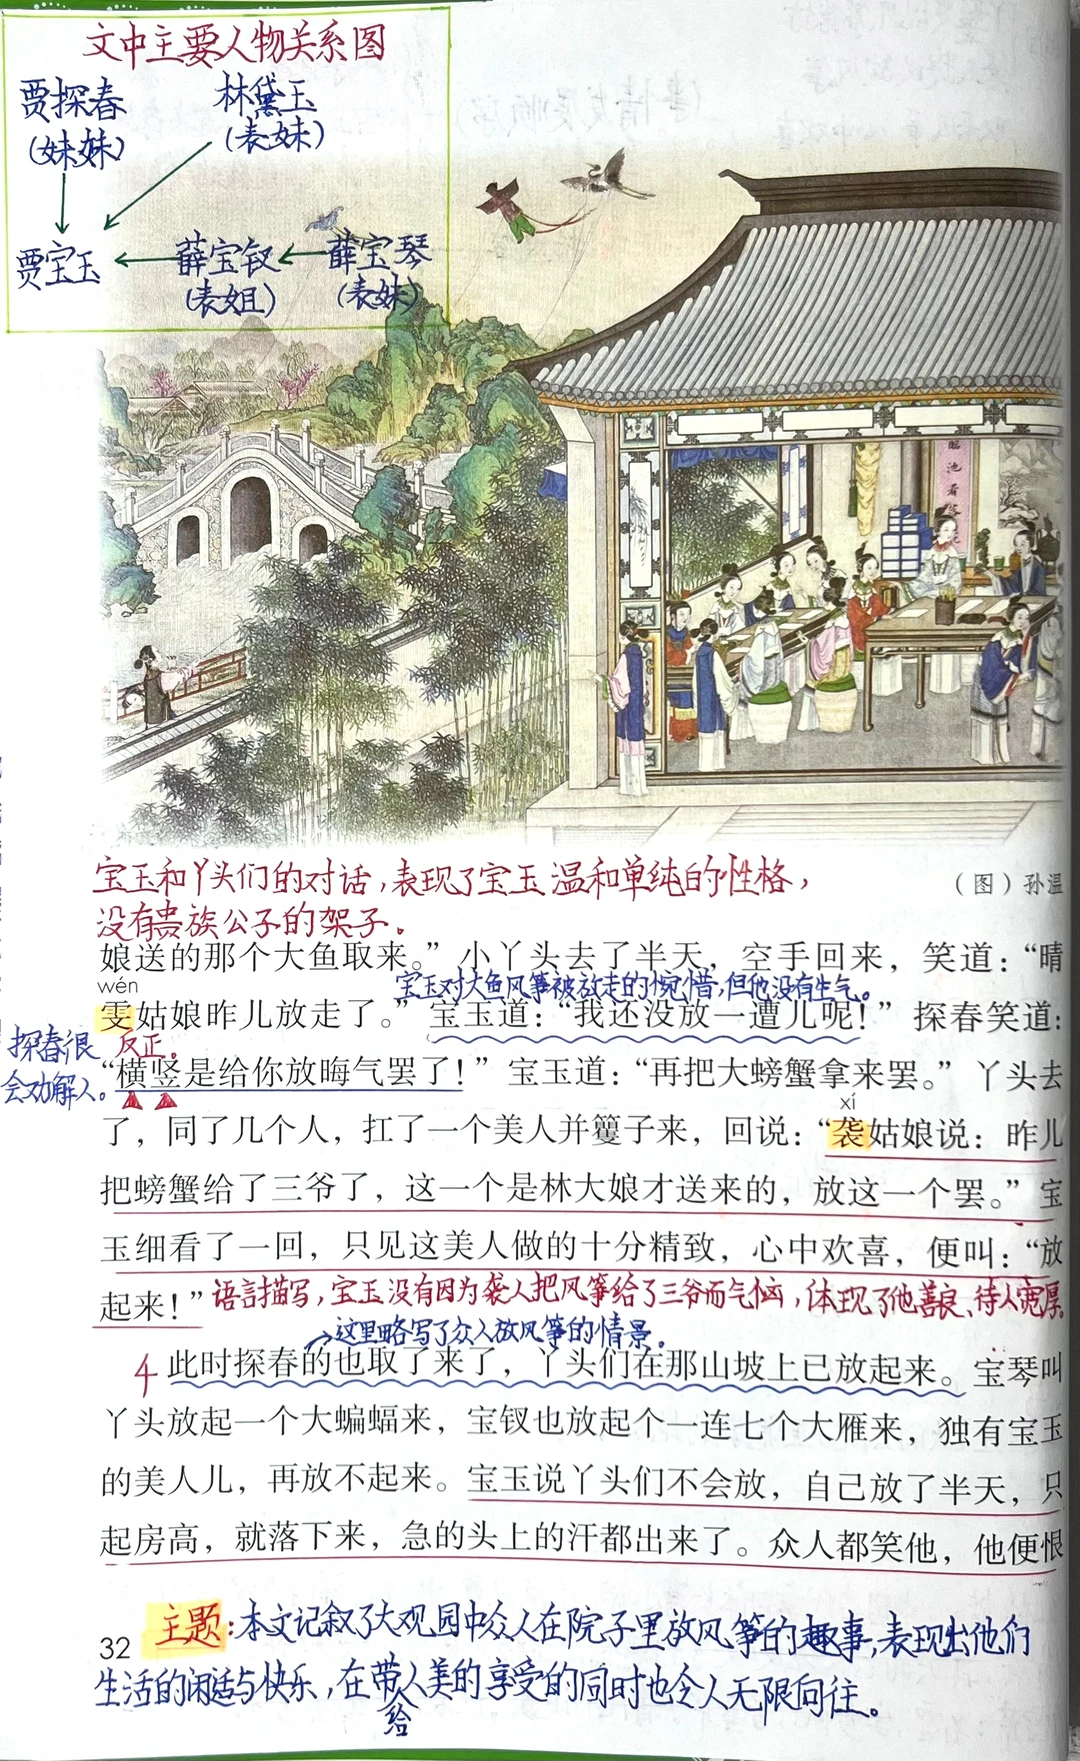 文中主要人物关系图
贾探春 林黛玉
(妹妹) (表妹)
贾宝玉 薛宝钗 薛宝琴
(表姐) (表妹)
临池看
宝玉和丫头们的对话,表现了宝玉温和单纯的性格,
没有贵族公子的架子。
(图)孙温
娘送的那个大鱼取来。”小丫头去了半天,空手回来,笑道:“晴
wén
宝玉对大鱼风筝被放走的惋惜,但他没有生气。
雯姑娘昨儿放走了。”宝玉道:“我还没放一遭儿呢!”探春笑道:
探春很
会劝解人。
反正。
“横竖是给你放晦气罢了!”宝玉道:“再把大螃蟹拿来罢。”丫头去
xí
了,同了几个人,扛了一个美人并籰子来,回说:“袭姑娘说:昨儿
把螃蟹给了三爷了,这一个是林大娘才送来的,放这一个罢。”宝
玉细看了一回,只见这美人做的十分精致,心中欢喜,便叫:“放
起来!”
语言描写,宝玉没有因为袭人把风筝给了三爷而气恼,体现了他善良、待人宽厚
这里略写了众人放风筝的情景。
4 此时探春的也取了来了,丫头们在那山坡上已放起来。宝琴叫
丫头放起一个大蝙蝠来,宝钗也放起个一连七个大雁来,独有宝玉
的美人儿,再放不起来。宝玉说丫头们不会放,自己放了半天,只
起房高,就落下来,急的头上的汗都出来了。众人都笑他,他便恨
32
主题:本文记叙了大观园中众人在院子里放风筝的趣事,表现出他们
生活的闲适与快乐,在带给人美的享受的同时也令人无限向往。